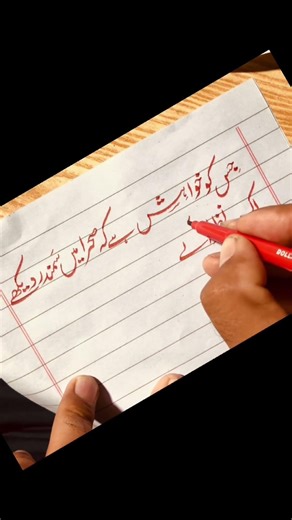 جس کو خواہش ہے کہ صحرا میں سمندر دیکھے
اک